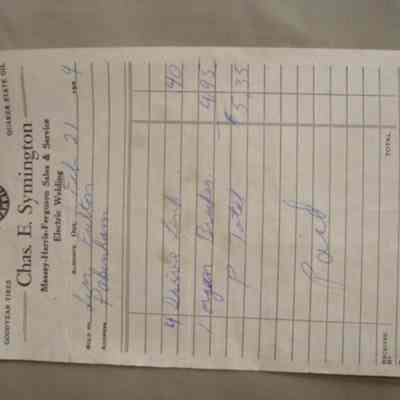 GOODYEAR TIRES QUAKER STATE OIL
Chas. E. Symington
Massey-Harris-Ferguson Sales & Service
Electric Welding
Almonte, Ont., Feb 21 1959
Sold to Len Fulton
Address Pakenham
4 Drive Link 40
1 4.95
Total $5.35
Paid
RECEIVED BY TOTAL